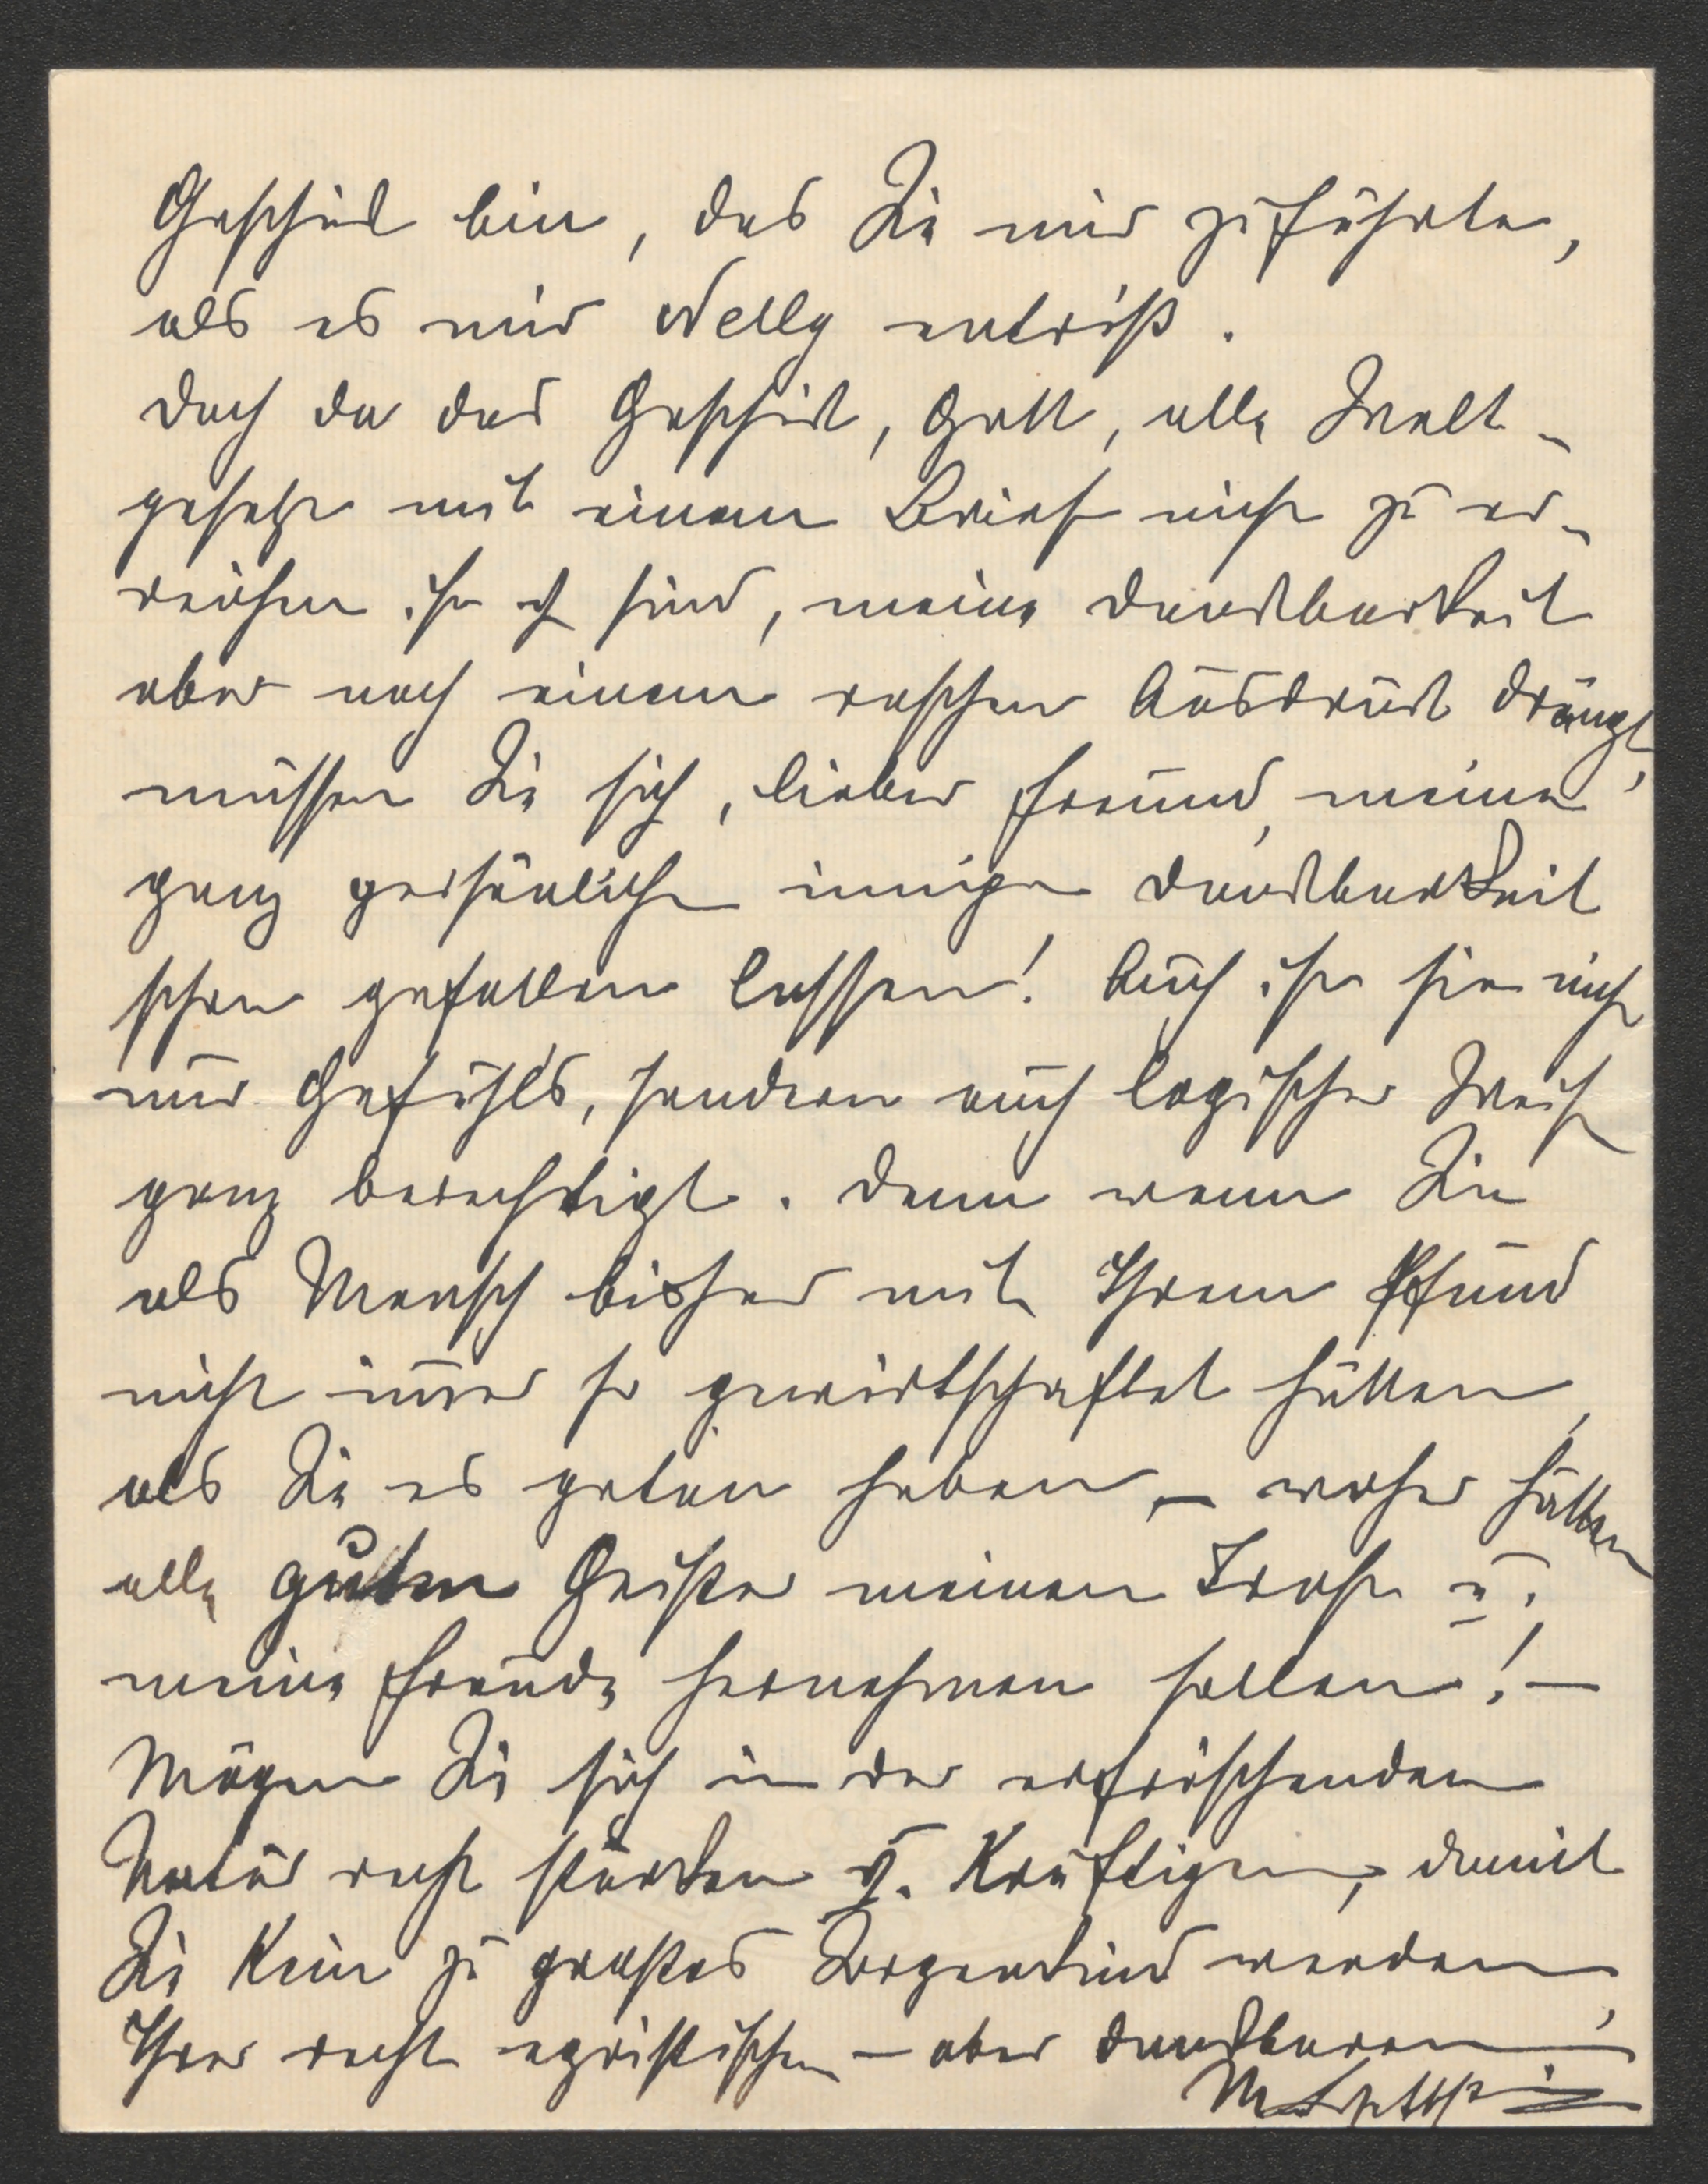 Geschick bin, das Sie mir zuführte,
als es mir Nelly entriß.
Doch da das Geschick, Gott, alle Welt-
gesetze mit einem Brief nicht zu er-
reichen sind, meine Dankbarkeit
aber nach einem raschen Ausdruck drängt,
müssen Sie sich, lieber Freund, meine
ganz persönliche innige Dankbarkeit
schon gefallen lassen! Auch ist sie nicht
nur Gefühls, sondern auch logischer Weise
ganz berechtigt. Denn wenn Sie
als Mensch bisher mit Ihrem Pfund
nicht immer so gewirtschaftet hätten,
als Sie es getan haben, – woher hätten
alle guten Geister meinen Trost u.
meine Freude hernehmen sollen! –
Mögen Sie sich in der erfrischenden
Natur recht stärken u. kräftigen, damit
Sie kein zu großes Sorgenkind werden
Ihrer recht egoistischen – aber dankbaren